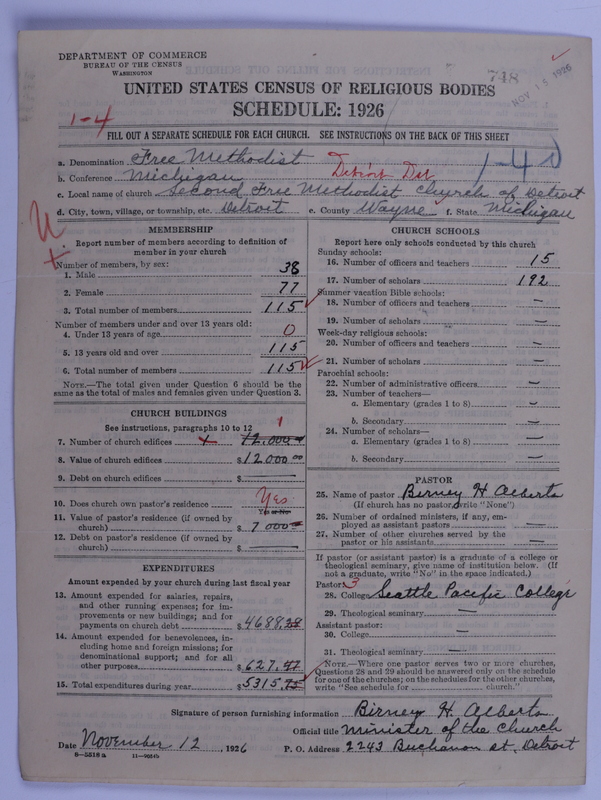 DEPARTMENT OF COMMERCE
BUREAU OF THE CENSUS
WASHINGTON
748
NOV 15 1926
UNITED STATES CENSUS OF RELIGIOUS BODIES
SCHEDULE: 1926
1-4
FILL OUT A SEPARATE SCHEDULE FOR EACH CHURCH. SEE INSTRUCTIONS ON THE BACK OF THIS SHEET
a. Denomination Free Methodist
b. Conference Michigan Detroit Dist
c. Local name of church Second Free Methodist Church of Detroit
d. City, town, village, or township, etc. Detroit e. County Wayne f. State Michigan
MEMBERSHIP
Report number of members according to definition of
member in your church
Number of members, by sex:
1. Male 38
2. Female 77
3. Total number of members 115
Number of members under and over 13 years old:
4. Under 13 years of age 0
5. 13 years old and over 115
6. Total number of members 115
NOTE.—The total given under Question 6 should be the
same as the total of males and females given under Question 3.
CHURCH BUILDINGS
See instructions, paragraphs 10 to 12
1
7. Number of church edifices 12,000
8. Value of church edifices $12000.00
9. Debt on church edifices $ —
10. Does church own pastor's residence Yes
Yes or No
11. Value of pastor's residence (if owned by
church) $ 7000
12. Debt on pastor's residence (if owned by
church) $ —
EXPENDITURES
Amount expended by your church during last fiscal year
13. Amount expended for salaries, repairs,
and other running expenses; for im-
provements or new buildings; and for
payments on church debt $4688.28
14. Amount expended for benevolences, in-
cluding home and foreign missions; for
denominational support; and for all
other purposes $627.47
15. Total expenditures during year $5315.75
CHURCH SCHOOLS
Report here only schools conducted by this church
Sunday schools:
16. Number of officers and teachers 15
17. Number of scholars 192
Summer vacation Bible schools:
18. Number of officers and teachers —
19. Number of scholars —
Week-day religious schools:
20. Number of officers and teachers —
21. Number of scholars —
Parochial schools:
22. Number of administrative officers —
23. Number of teachers—
a. Elementary (grades 1 to 8) —
b. Secondary —
24. Number of scholars—
a. Elementary (grades 1 to 8) —
b. Secondary —
PASTOR
25. Name of pastor Birney H Alberts
(If church has no pastor, write "None")
26. Number of ordained ministers, if any, em-
ployed as assistant pastors —
27. Number of other churches served by the
pastor or his assistants —
If pastor (or assistant pastor) is a graduate of a college or
theological seminary, give name of institution below. (If
not a graduate, write "No" in the space indicated.)
Pastor: 3
28. College Seattle Pacific College
29. Theological seminary —
Assistant pastor:
30. College —
31. Theological seminary —
NOTE.—Where one pastor serves two or more churches,
Questions 28 and 29 should be answered only on the schedule
for one of the churches; on the schedules for the other churches,
write "See schedule for church."
Signature of person furnishing information Birney H. Alberts
Official title Minister of the Church
Date November 12, 1926 P. O. Address 2243 Buchanon st. Detroit
8-5518 a 11-9051b